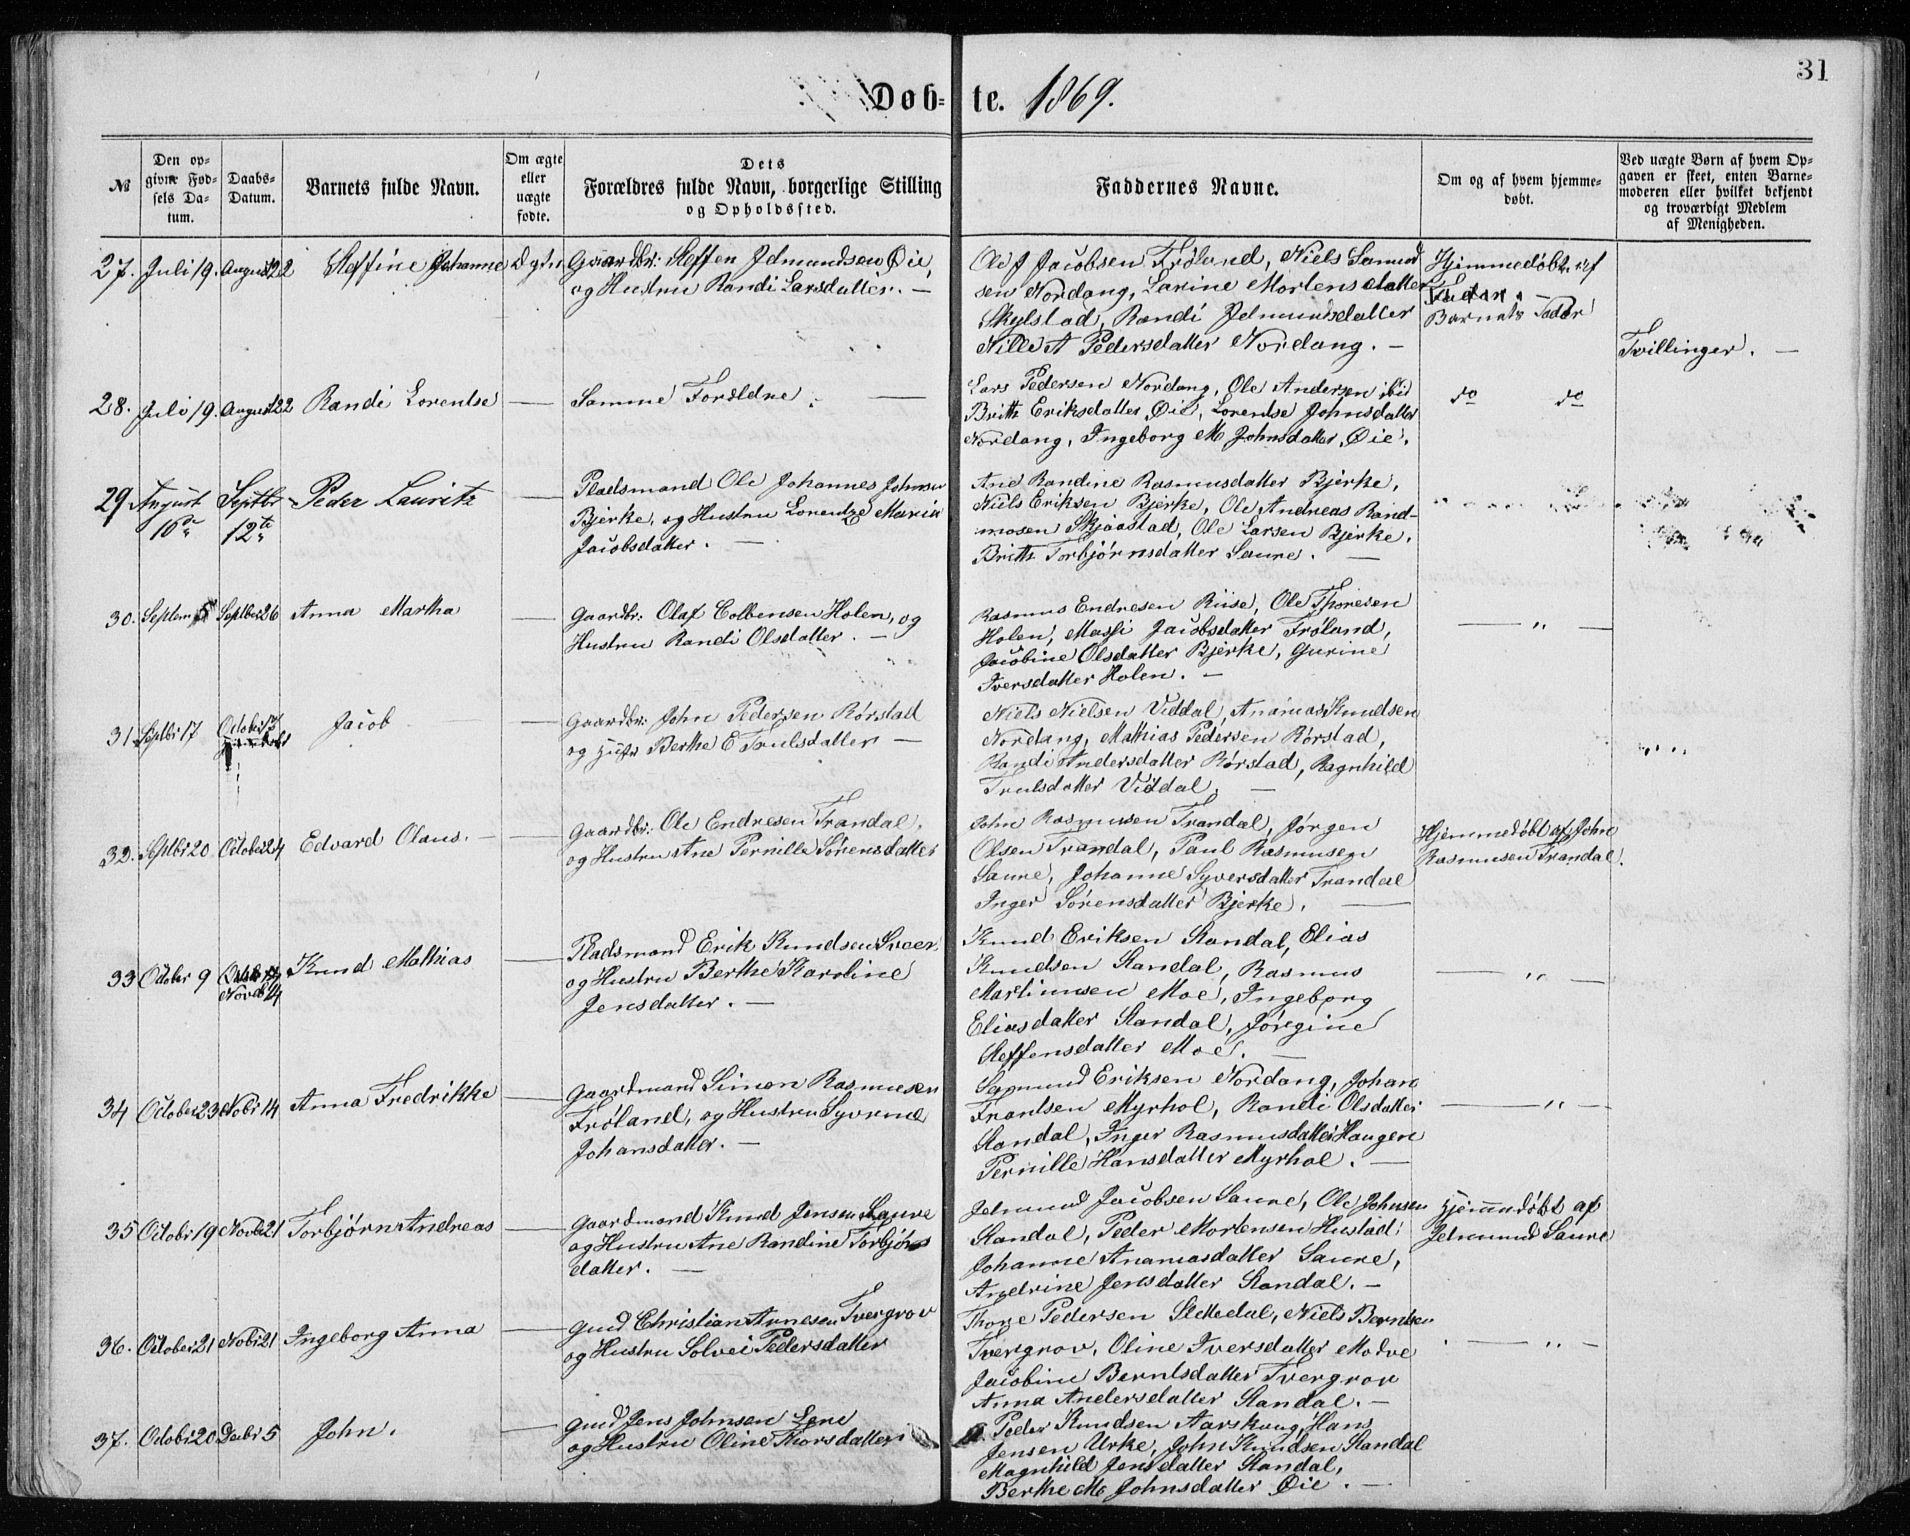 31
Døb- te. 1869.
№
Den op-
givne Fød-
sels Da-
tum.
Daabs-
Datum.
Barnets fulde Navn.
Om ægte
eller
uægte
fødte.
Dets
Forældres fulde Navn, borgerlige Stilling
og Opholdssted.
Faddernes Navne.
Om og af hvem hjemme-
døbt.
Ved uægte Børn af hvem Op-
gaven er skeet, enten Barne-
moderen eller hvilket bekjendt
og troværdigt Medlem
af Menigheden.
27. Juli 19. August 22 Steffine Johanne
Gaardbr: Steffen Jetmundsen Øie,
og Hustru Randi Larsdatter. —
Ole J Jacobsen Frøland, Niels Samund
sen Nordang, Larine Mortensdatter
Skylstad, Randi Jetmundsdatter
Nille A Pedersdatter Nordang. —
Hjemmedøbt af
Barnets Fader
Tvillinger. —
28. Juli 19. August 22 Randi Lorentse —
Samme Forældre. —
Lars Pedersen Nordang, Ole Andersen ibid
Britte Eriksdatter Øie, Lorentse Johnsdatter
Nordang, Ingeborg M Johnsdatter, Øie.
do do
29 August 16de Septbr 12te Peder Lauritz —
Pladsmand Ole Johannes Johnsen
Bjerke, og Hustru Lorentze Marie
Jacobsdatter. —
Ane Randine Rasmusdatter Bjerke,
Niels Eriksen Bjerke, Ole Andreas Rand-
mosen Skjaastad, Ole Larsen Bjerke.
Britte Torbjørnsdatter Saure. —
30. Septem 5 Septber 26 Anna Martha —
Gaardbr: Olaf Colbensen Holen, og
Hustru Randi Olsdatter. —
Rasmus Endresen Riise, Ole Thoresen
Holen, Massi Jacobsdatter Frøland,
Jacobine Olsdatter Bjerke, Gurine
Iversdatter Holen. —
— " —
31 Septbr 17 October Jacob —
Gaardbr: John Pedersen Rørstad
og Hustr Berthe E Trulsdatter —
Niels Nielsen Viddal, Ananias Knudsen
Nordang, Mathias Pedersen Rørstad,
Randi Andersdatter Rørstad, Ragnhild
Trulsdatter Viddal. —
32. Septbr 20 October 24 Edvard Olaus. —
Gaardbr: Ole Endresen Trandal,
og Hustru Ane Pernille Sørensdatter
John Rasmusen Trandal, Jørgen
Olsen Trandal, Paul Rasmusen
Saure, Johanne Syversdatter Trandal
Inger Sørensdatter Bjerke. —
Hjemmedøbt af John
Rasmusen Trandal.
33 October 9 Novbr 14 Knud Mathias —
Pladsmand Erik Knudsen
og Hustru Berthe Karoline
Jensdatter. —
Knud Eriksen Standal, Elias
Knudsen Standal, Rasmus
Martinusen Moe, Ingeborg
Eliasdatter Standal, Jørgine
Steffensdatter Moe. —
— " —
34 October 23 Nobr 14 Anna Fredrikke —
Gaardmand Simon Rasmusen
Frøland, og Hustru Syverne
Johansdatter. —
Samund Eriksen Nordang, Johan
Frantsen Myrhol, Randi Olsdatter
Standal, Inger Rasmusdatter Haugen
Pernille Hansdatter Myrhol. —
— " —
35 Octobr 19 Novbr 21 Torbjørn Andreas —
Gaardmand Knud Jensen Saure
og Hustru Ane Randine Torbjørns
datter. —
Jetmund Jacobsen Saure, Ole Johnsen
Standal, Peder Mortensen Hustad
Johanne Ananiasdatter Saure,
Andrine Jensdatter Standal. —
Hjemmedøbt af
Jetmund Saure
36. October 21 Nobr 21 Ingeborg Anna —
Gmd Christian Arnesen Tvergrov
og Hustru Solvei Pedersdatter
Thore Pedersen Slettedal, Niels Berntsen
Tvergrov, Oline Iversdatter Modve
Jacobine Berntsdatter Tvergrov
Anna Andersdatter Standal. —
— " —
37. Octobr 20 Decbr 5 John. —
Gmd Jens Johnsen Lene
og Hustru Oline Thorsdatter
Peder Knudsen Aarskaug, Hans
Jensen Urke, John Knudsen Standal
Magnhild Jensdatter Standal,
Berthe M Johnsdatter Øie. —